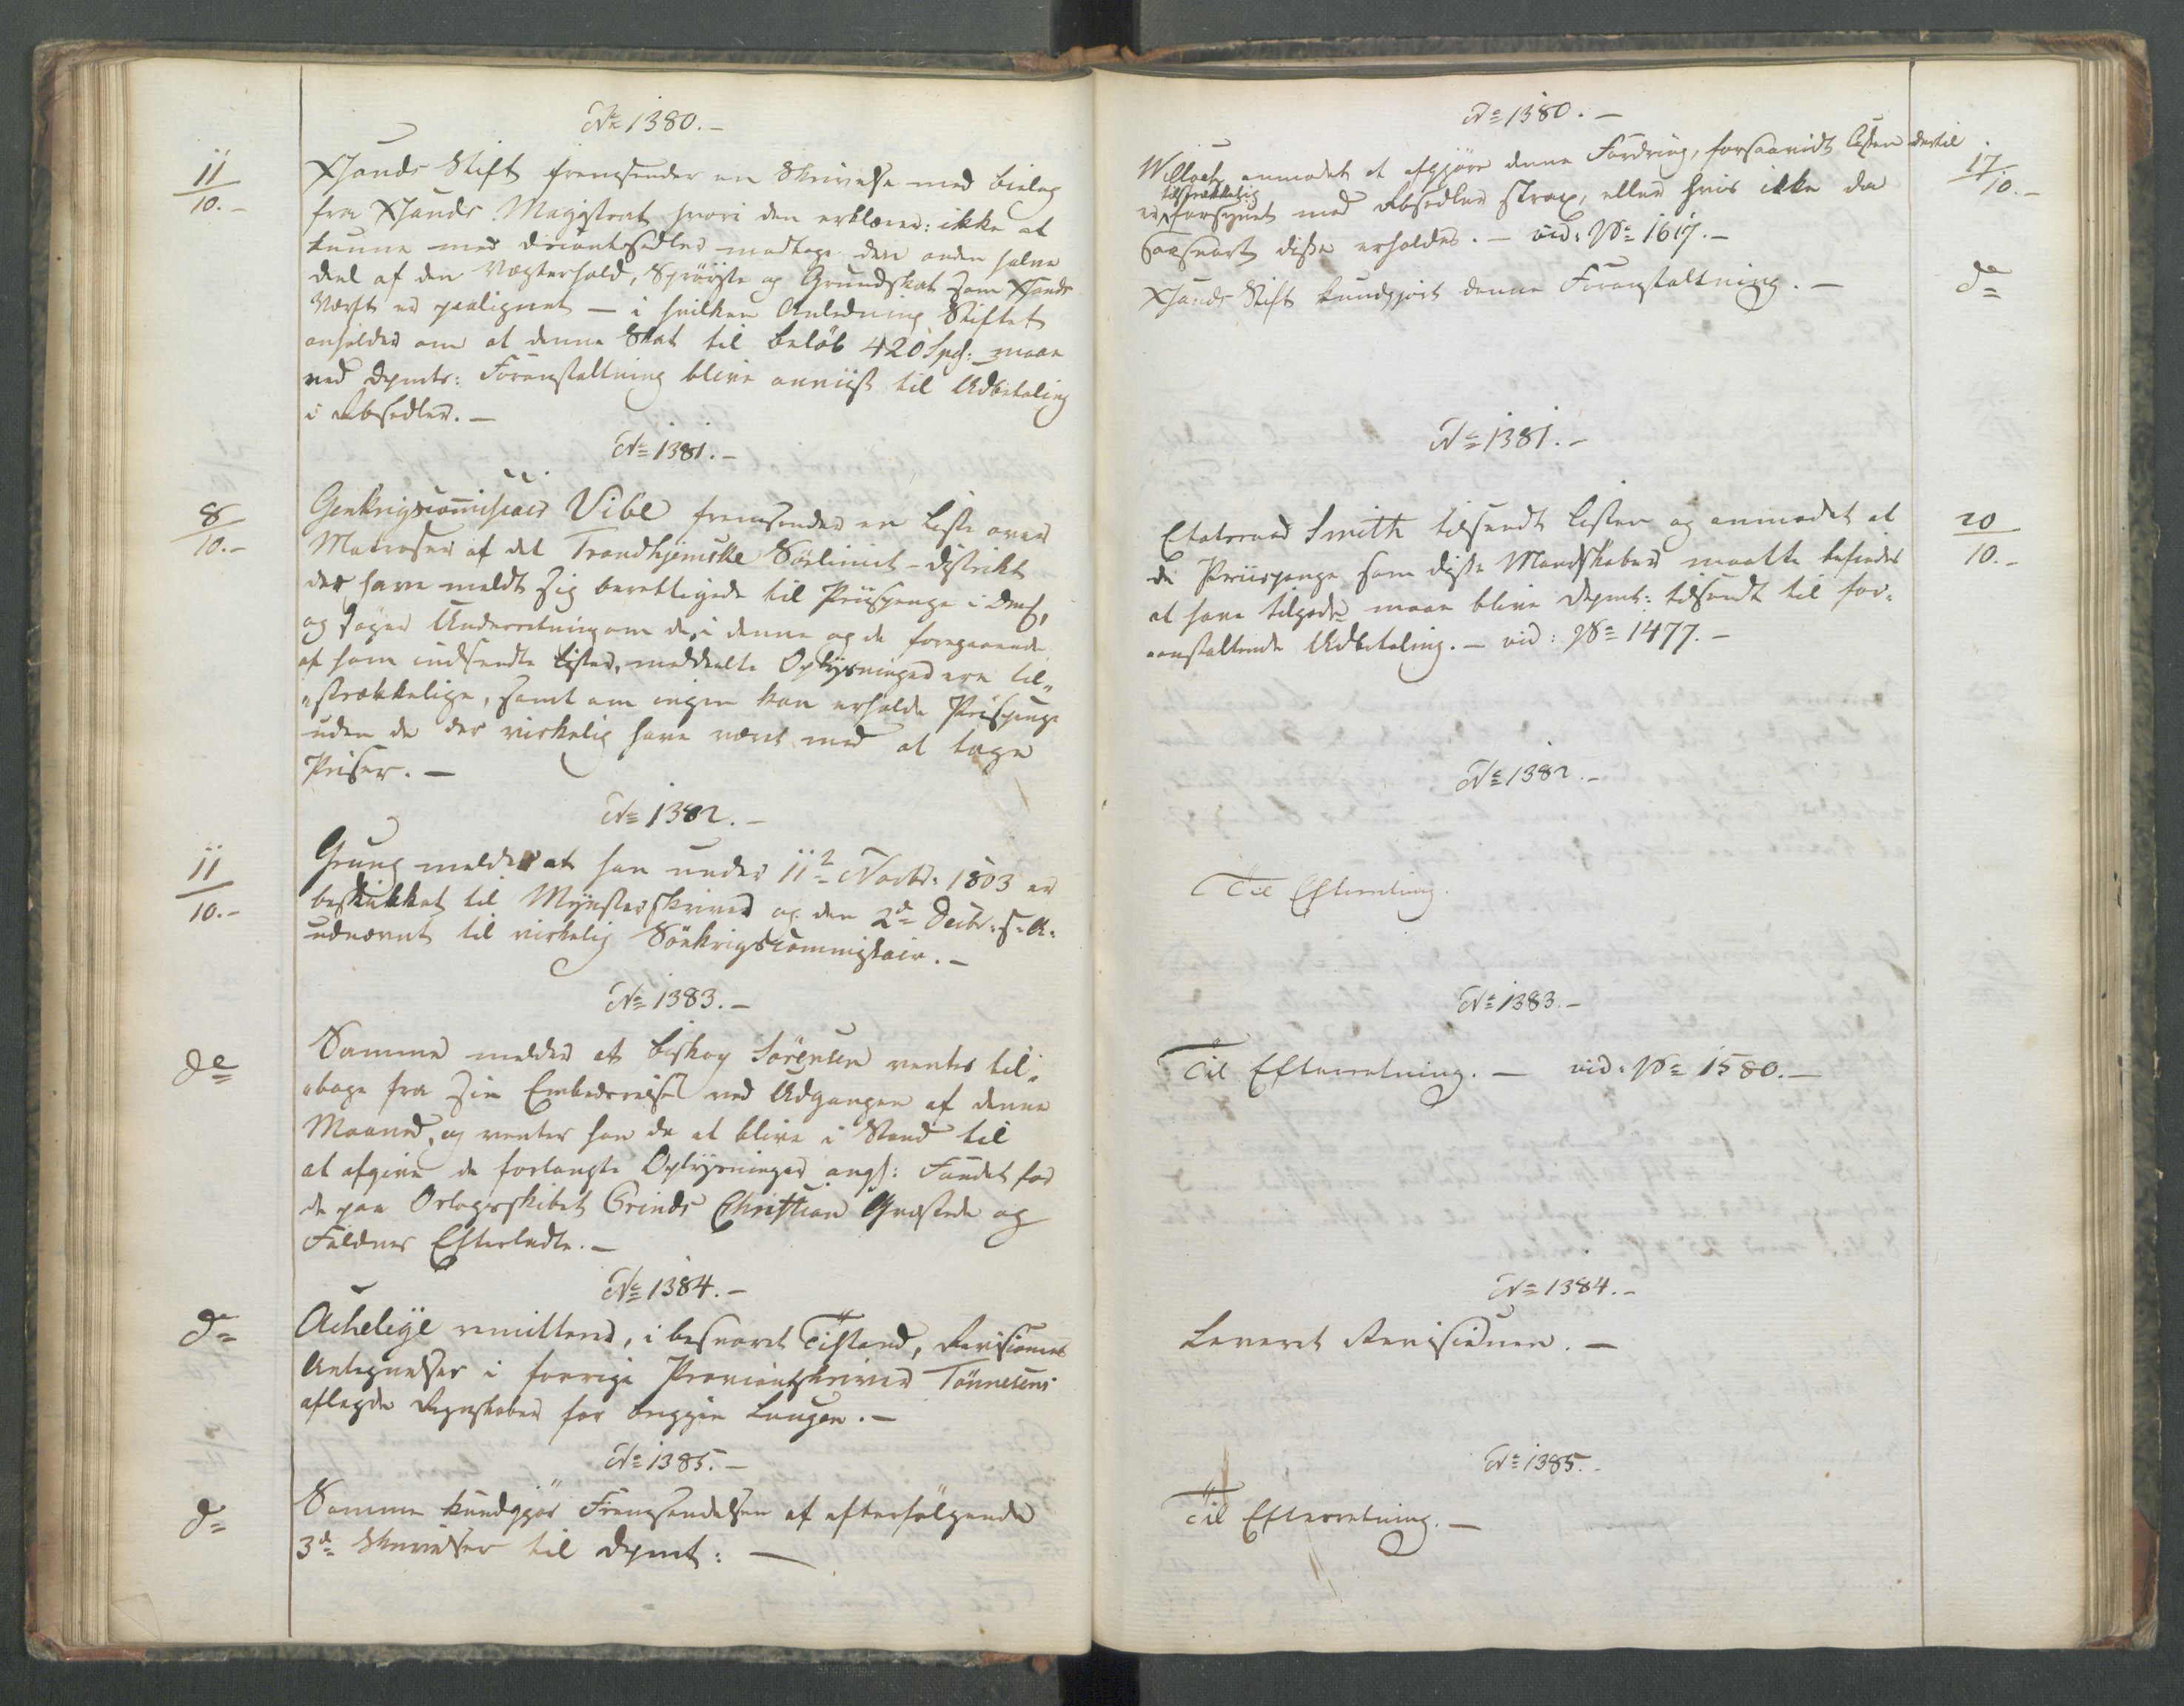 No 1380.-
11/10.-
Xsands Stift fremsender en Skrivelse med bielag
fra Xsands Magistrat hvori den erklærer: ikke at
kunne med discontosedler modtage den anden halve
deel af den Vægterhold, Sprøyte og Grundskat som Xsands
Værft er paalignet — i hvilken Anledning Stiftet
anholder om at denne Skat til Beløb 420 Spd: maae
ved Depmts: Foranstaltning blive anviist til Udbetaling
i Rbsedler.-
No 1381.-
8/10.-
Genkrigscommissair Vibe fremsender en Liste over
Matroser af det Trondhjemske Sølimit-distrikt
der have meldt sig berettigede til Priispenge i
og søger Underretning om de, i denne og de foregaaende
af ham indsendte Lister, meddeelte Oplysninger ere til„
„strækkelige, samt om ingen kan erholde Priispenge
uden de der virkelig have været med at tage
Priser.-
No 1382.-
11/10.-
Grung melder at han under 11te Novbr: 1803 er
beskikket til Mynsterskriver og den 2de Decbr: s: A:
udnævnt til virkelig Söekrigscommissair.-
No 1383.-
do
Samme melder at Biskop Sörensen ventes til„
„bage fra sin Embedsreise ved Udgangen af denne
Maaned, og venter han da at blive i Stand til
at afgive de forlangte Oplysninger angl: Fondet for
de paa Orlogsskibet Prinds Christian Qvæstede og
Faldnes Efterladte.-
No 1384.-
do
Achelye remitterer, i besvaret Tilstand, Revisionens
Antegnelser i forrige Proviantskriver Tönnesens
aflagde Regnskaber for Briggen Lougen.-
No 1385.-
do
Samme kundgjør Fremsendelsen af efterfølgende
3de Skrivelser til Depmt: —
No 1380.-
Willoch anmodet at afgjöre denne Fordring, forsaavidt Cassen dertil
tilstrækkelig
er forsynet med Rbsedler strax, eller hvis ikke da
saasnart disse erholdes.- vid: No 1617.-
17/10.-
Xsands Stift kundgjort denne Foranstaltning.-
do
No 1381.-
Etatsraad Smith tilsendt Listen og anmodet at
de Priispenge som disse Mandskaber maatte befindes
at have tilgode maae blive Depmt: tilsendt til for„
anstaltende Udbetaling.- vid: No 1477.-
20/10.-
No 1382.-
Til Efterretning.
No 1383.-
Til Efterretning.- vid: No 1580.-
No 1384.-
Leveret Revisionen.-
No 1385.-
Til Efterretning.-